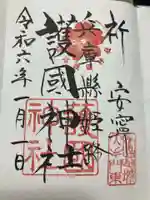 祈
安寧
兵庫縣姫路
護國神社
令和六年一月一日